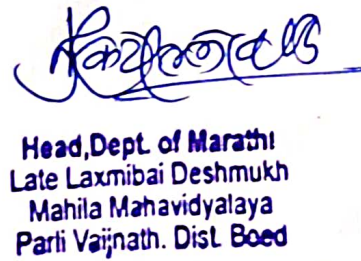 Head,Dept. of Marathi
Late Laxmibai Deshmukh
Mahila Mahavidyalaya
Parli Vaijnath. Dist. Beed